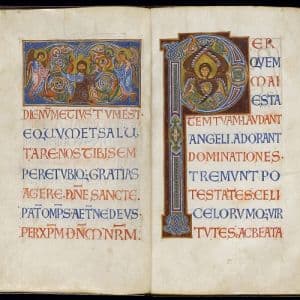 DIGNUM ET IUSTUM EST·
EQUUM ET SALU
TARE NOS TIBI SEM
PER ET UBIQ; GRATIAS
AGERE· DÑE SANCTE·
PAT̄ OMP̄S· AET̄NE DEUS·
PER XP̄M· DN̄M N̄RM̄·
PER
QUEM
MAI
ESTA
TEM TUAM LAUDANT
ANGELI· ADORANT
DOMINATIONES·
TREMUNT PO
TESTATES· CELI
CELORUMQ; VIR
TUTES· AC BEATA